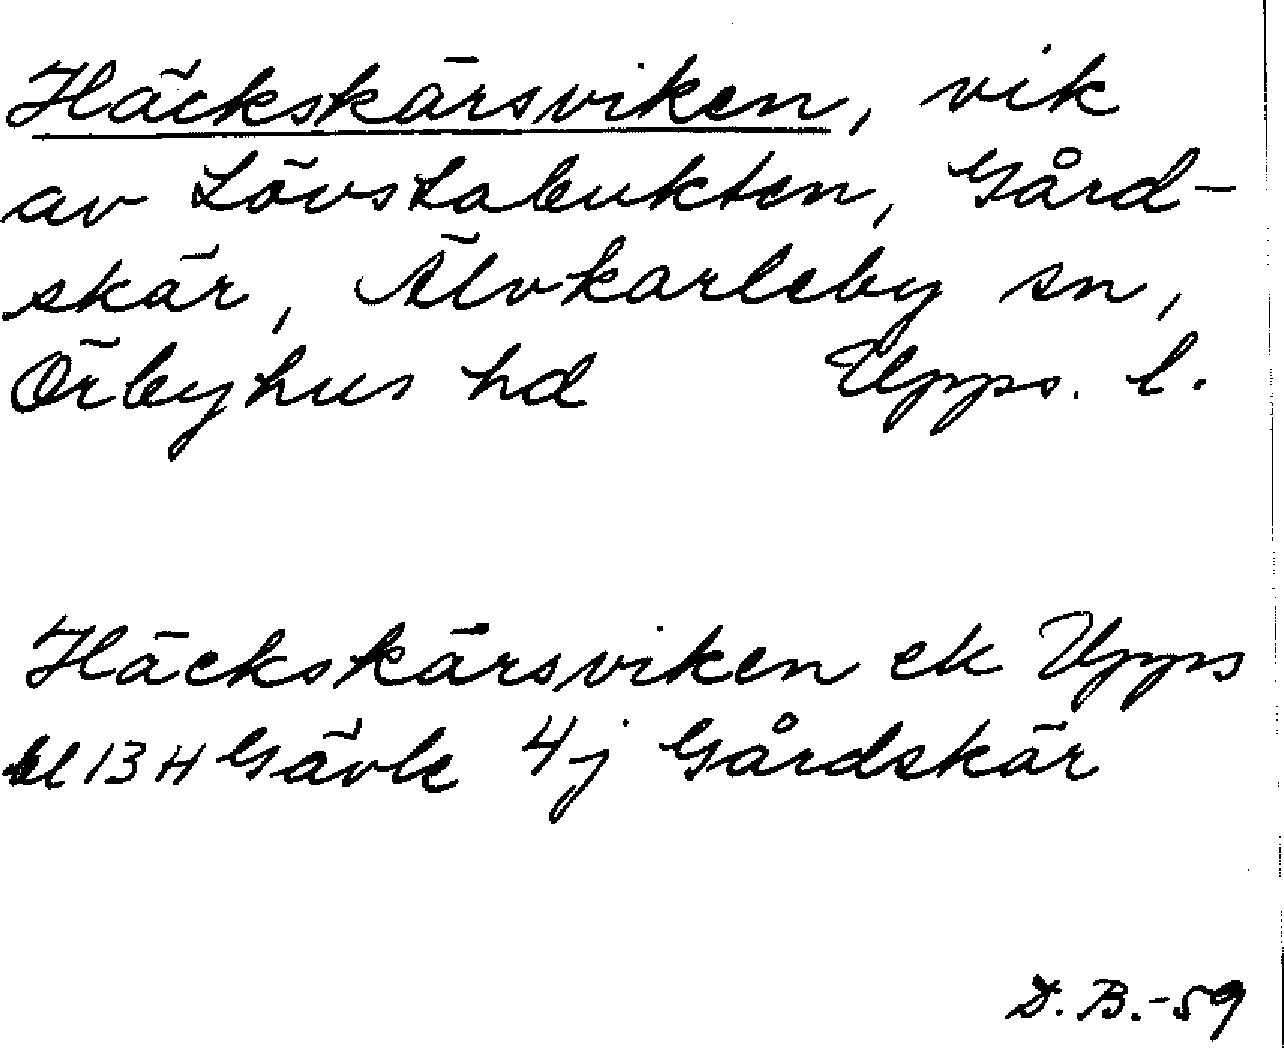 Häckskärsviken, vik
av Lövstabukten, Gård-
skär, Älvkarleby sn,
Örbyhus hd Upps. l.
Häckskärsviken ek Upps
bl 13 H Gävle 4j Gårdskär
D. B. -59